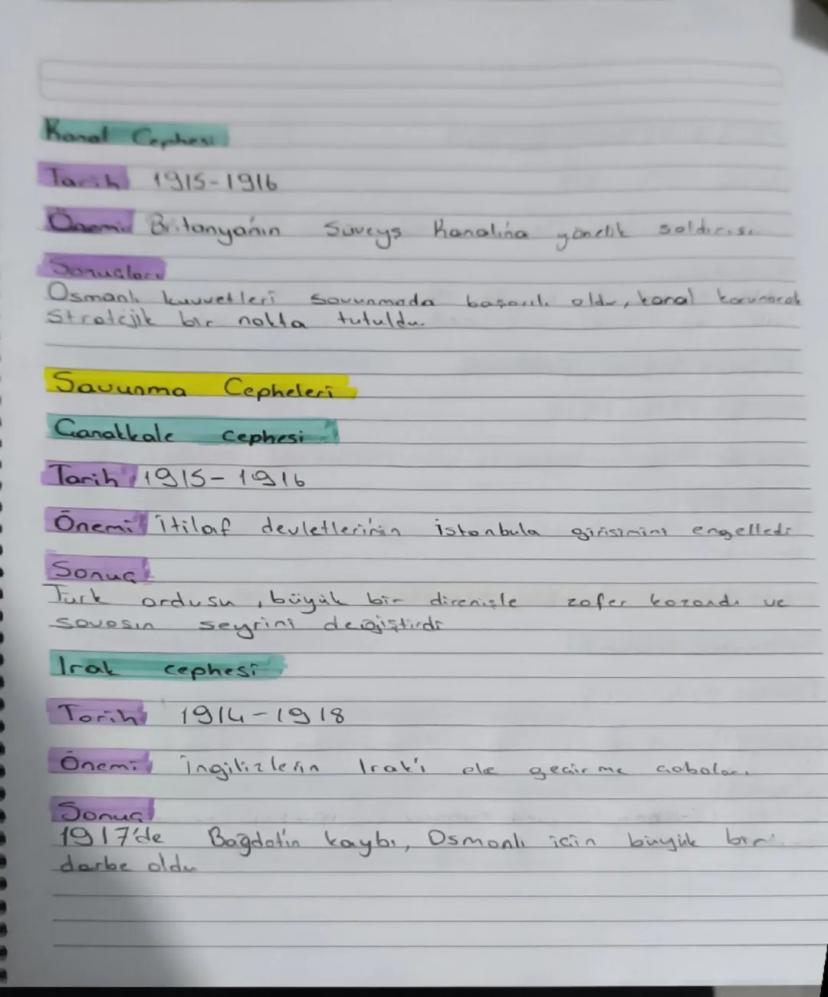 Kanal Cephesi
Tarih 1915-1916
Önemi Britanya'nın Süveys Kanalina yönelik saldırısı
Sonuçları
Osmanlı kuvvetleri savunmada başarılı oldu, kanal korunarak
Stratejik bir nokta tutuldu.
Savunma Cepheleri
Canakkale cephesi
Tarih 1915-1916
Önemi İtilaf devletlerinin İstanbula girisimini engelledi
Sonuç
Türk ordusu, büyük bir direnişle zafer kazandı ve
savasın seyrini değiştirdi
Irak cephesi
Tarih 1914-1918
Önemi İngilizlerin Irak'ı ele geçirme cabaları
Sonuç
1917'de Bağdat'ın kaybı, Osmanlı icin büyük bir
darbe oldu